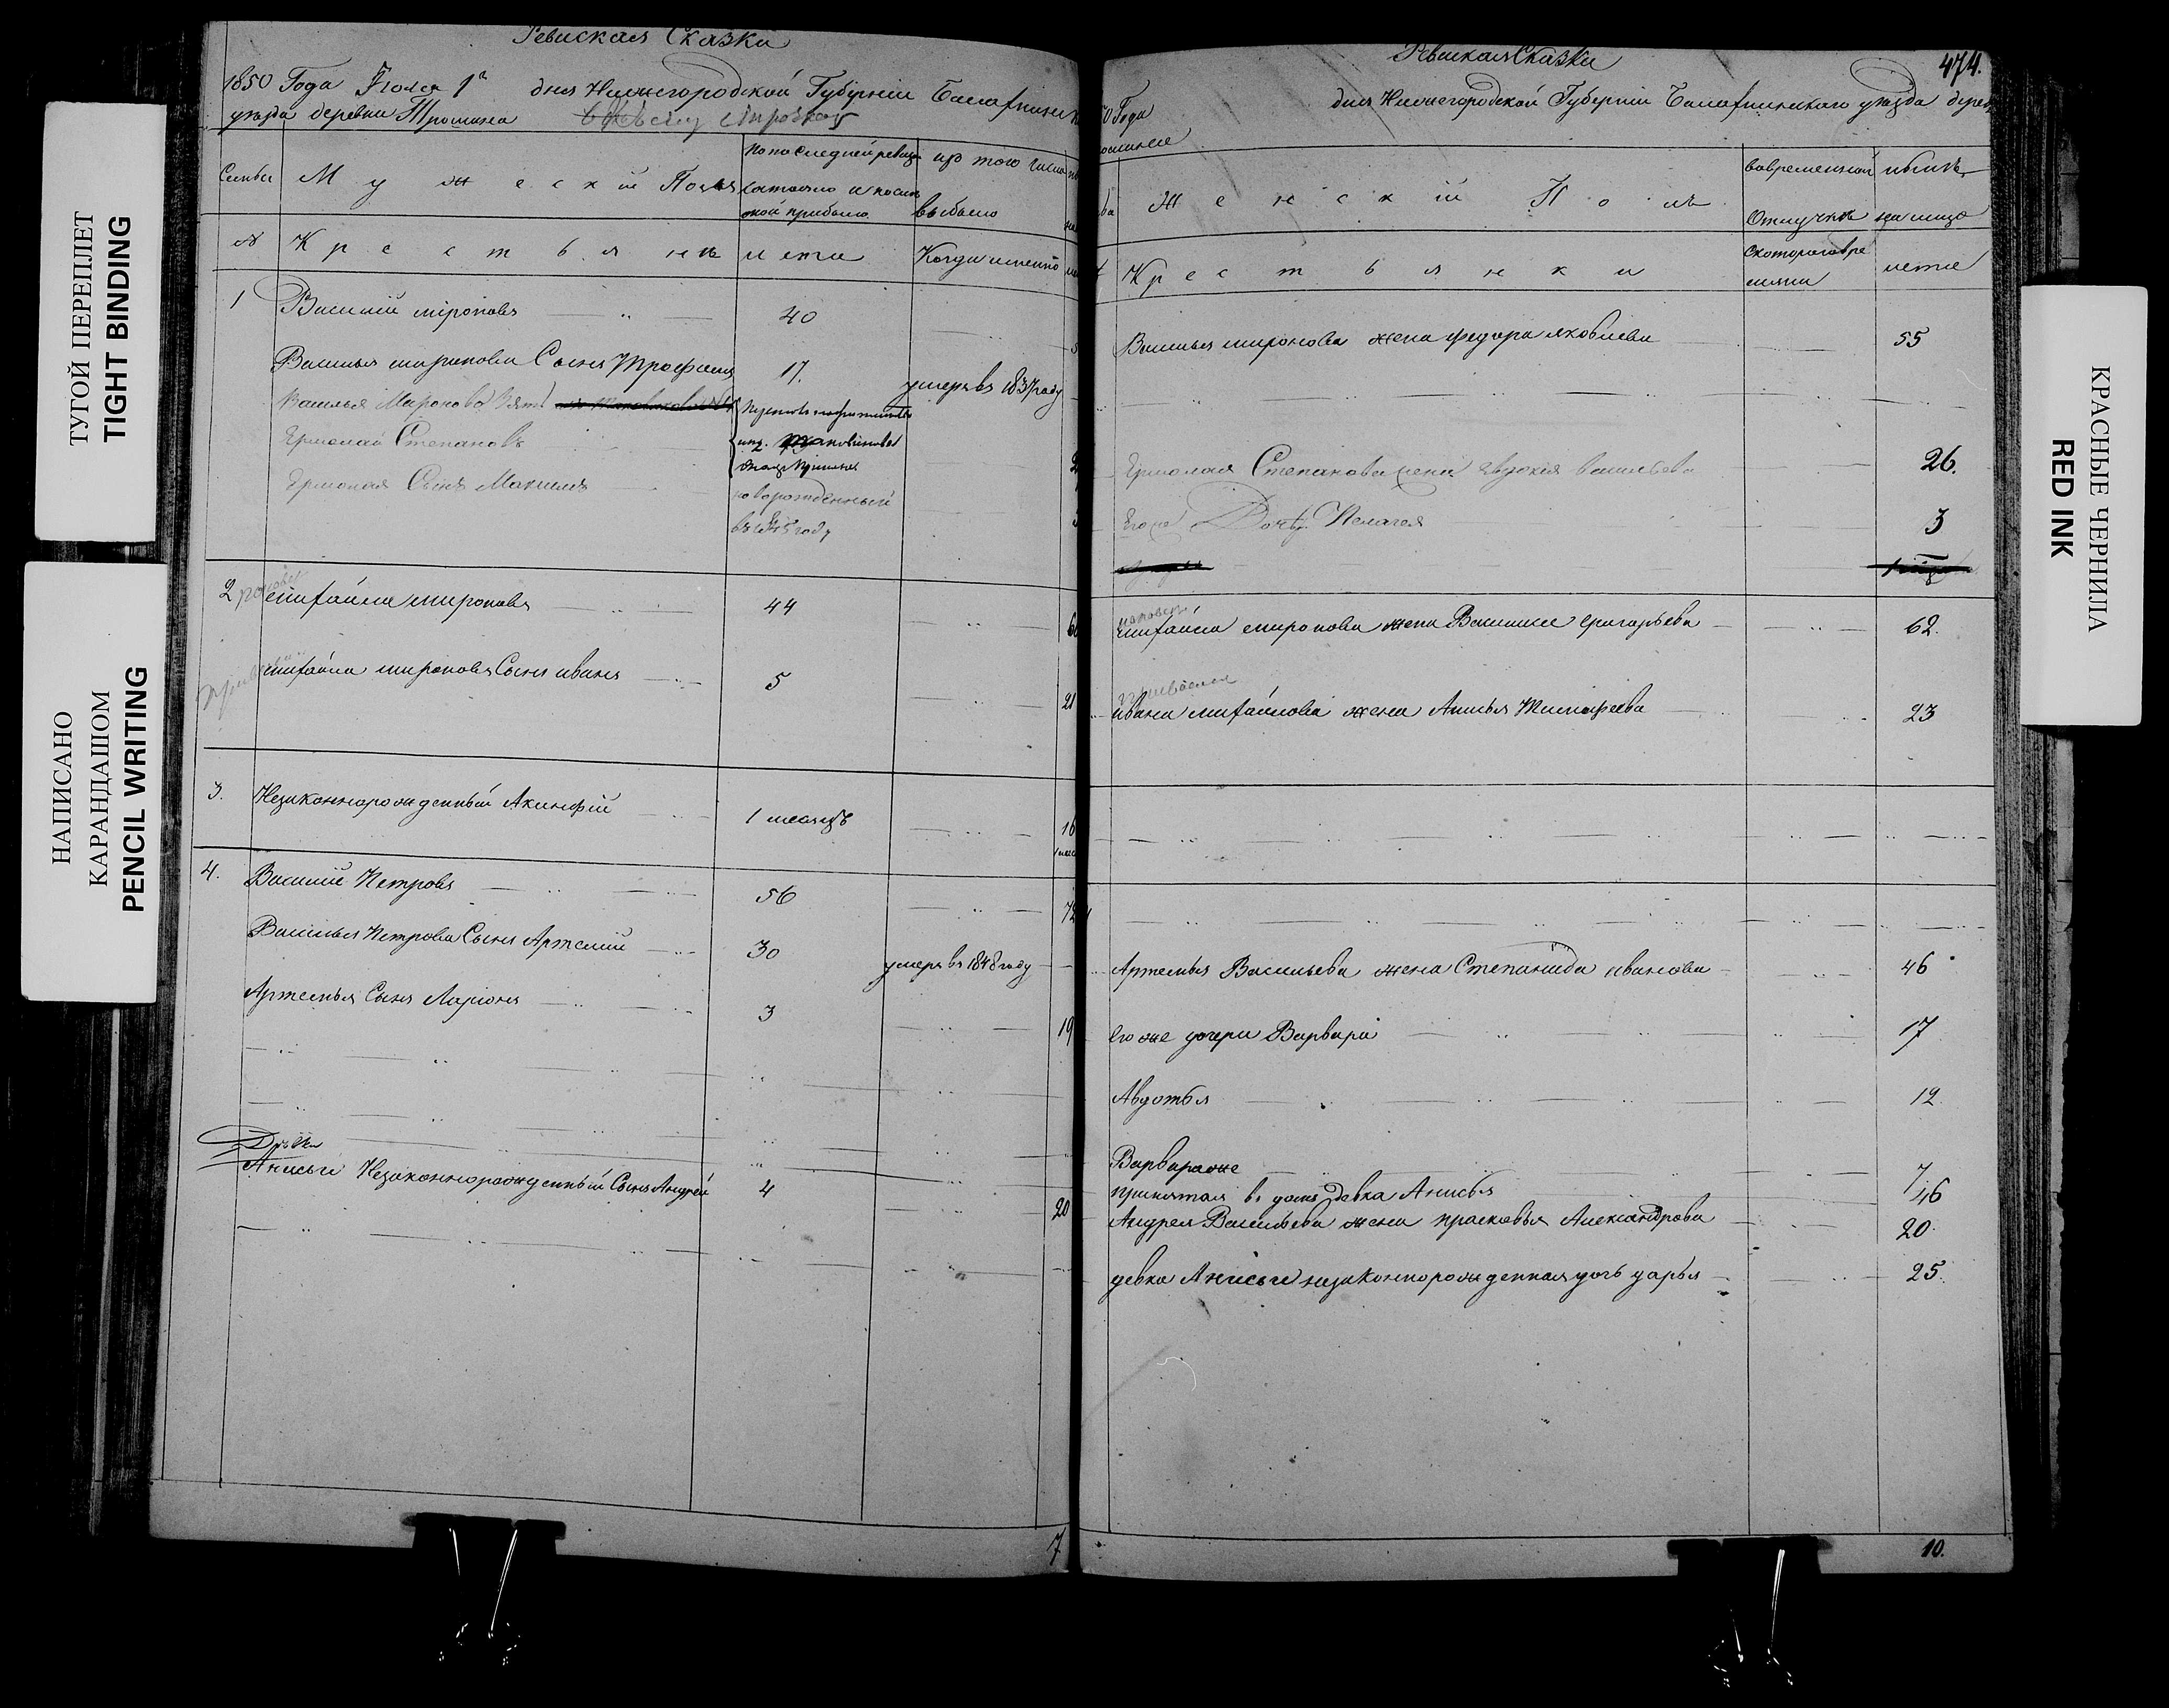 ТУГОЙ ПЕРЕПЛЕТ
TIGHT BINDING
НАПИСАНО
КАРАНДАШОМ
PENCIL WRITING
Ревиская Сказка
1850 Года Июля 1го дня Нижегородской Губернии Балахнинск
уезда деревни Трошина
Семьи
Мужеский Полъ
По последней ревизи
состояло и после
оной прибыло
из того числа
выбыло
№
Крестьянъ
лета
Когда именно
1
Василий мироновъ
40
Василья миронова Сынъ Трофимъ
17.
умеръ въ 1837 году
Василья Миронова Зять
Ермолай Степановъ
Ермолая Сынъ Максимъ
новорожденный
году
2
михайла мироновъ
44
михайла мироновъ Сынъ иванъ
5
21
3.
Незаконнорожденный Акинфий
1 месяцъ
16
4.
Василий Петровъ
56
Василья Петрова Сынъ Артемий
30
умеръ въ 1848 году
Артемья Сынъ Ларионъ
3
19
Девки
Анисьи Незаконнорожденный Сынъ Андрей
4
20
7
Ревиская Сказка
474.
Года
дня Нижегородской Губернии Балахнинскаго уезда дерев
Женский Полъ
вовременной
Отлучке
налицо
Крестьянки
Скотораговре
мяни
лета
Василья миронова жена федора яковлева
55
Ермолая Степанова жена авдокія васильева
26.
Егоже Дочь Пелагея
3
михайла миронова жена Василиса григорьева
62.
ивана михайлова жена Анисья Тимофеева
23
Артемья Васильева жена Степанида иванова
46
его же дочери Варвара
17
Авдотья
12
Варвара же
7
принятая въ домъ девка Анисья
46
Андрея Васильева жена прасковья Александрова
20.
девки Анисьи незаконнорожденная дочь дарья
25.
10.
КРАСНЫЕ ЧЕРНИЛА
RED INK